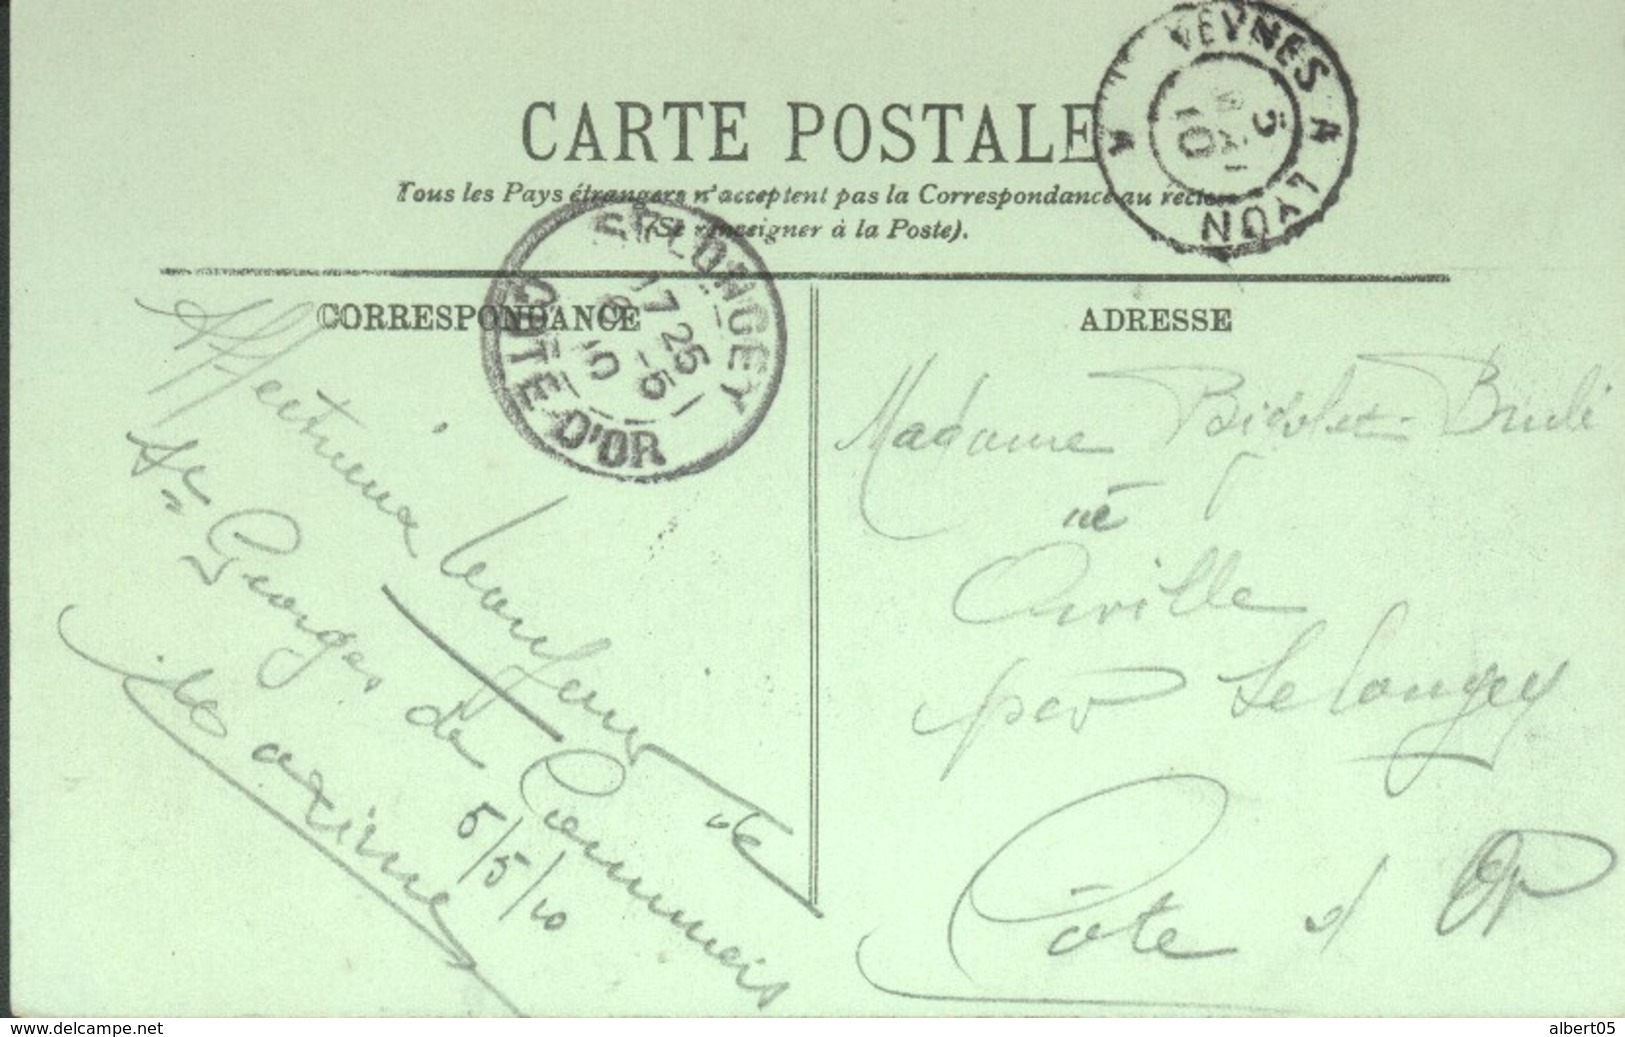 CARTE POSTALE
Tous les Pays étrangers n'acceptent pas la Correspondance au recto
(Se renseigner à la Poste).
VEYNES A LYON
5
10
A
SELONGEY
17 25
6 -5
10
COTE D'OR
CORRESPONDANCE
ADRESSE
St Georges de Commiers
5/5/10
Maxime
Madame
née
Orville
par Selongey
Côte d'Or
www.delcampe.net
albert05